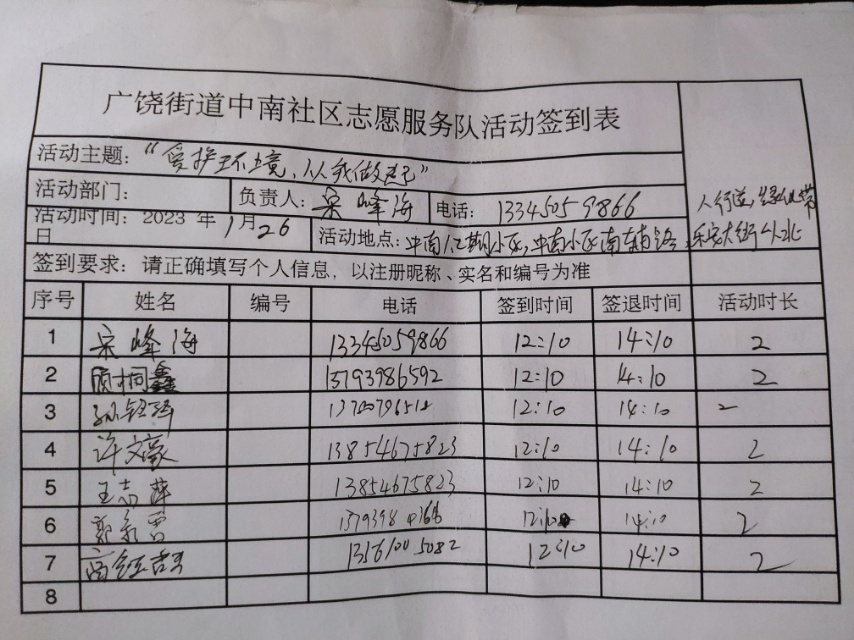 广饶街道中南社区志愿服务队活动签到表
活动主题：“爱护环境，从我做起”
活动部门： 负责人： 宋峰海 电话： 13345059866
活动时间：2023 年 1 月 26 日
活动地点：中南 期小区，中南小区南东南路 人行道，绿化带
大街以北
签到要求：请正确填写个人信息，以注册昵称、实名和编号为准
序号 姓名 编号 电话 签到时间 签退时间 活动时长
1 宋峰海 13345059866 12:10 14:10 2
2 桐鑫 13793986592 12:10 14:10 2
3 12:10 14:10 2
4 许文豪 13854675823 12:10 14:10 2
5 王志萍 13854675823 12:10 14:10 2
6 12:10 14:10 2
7 13561005082 12:10 14:10 2
8